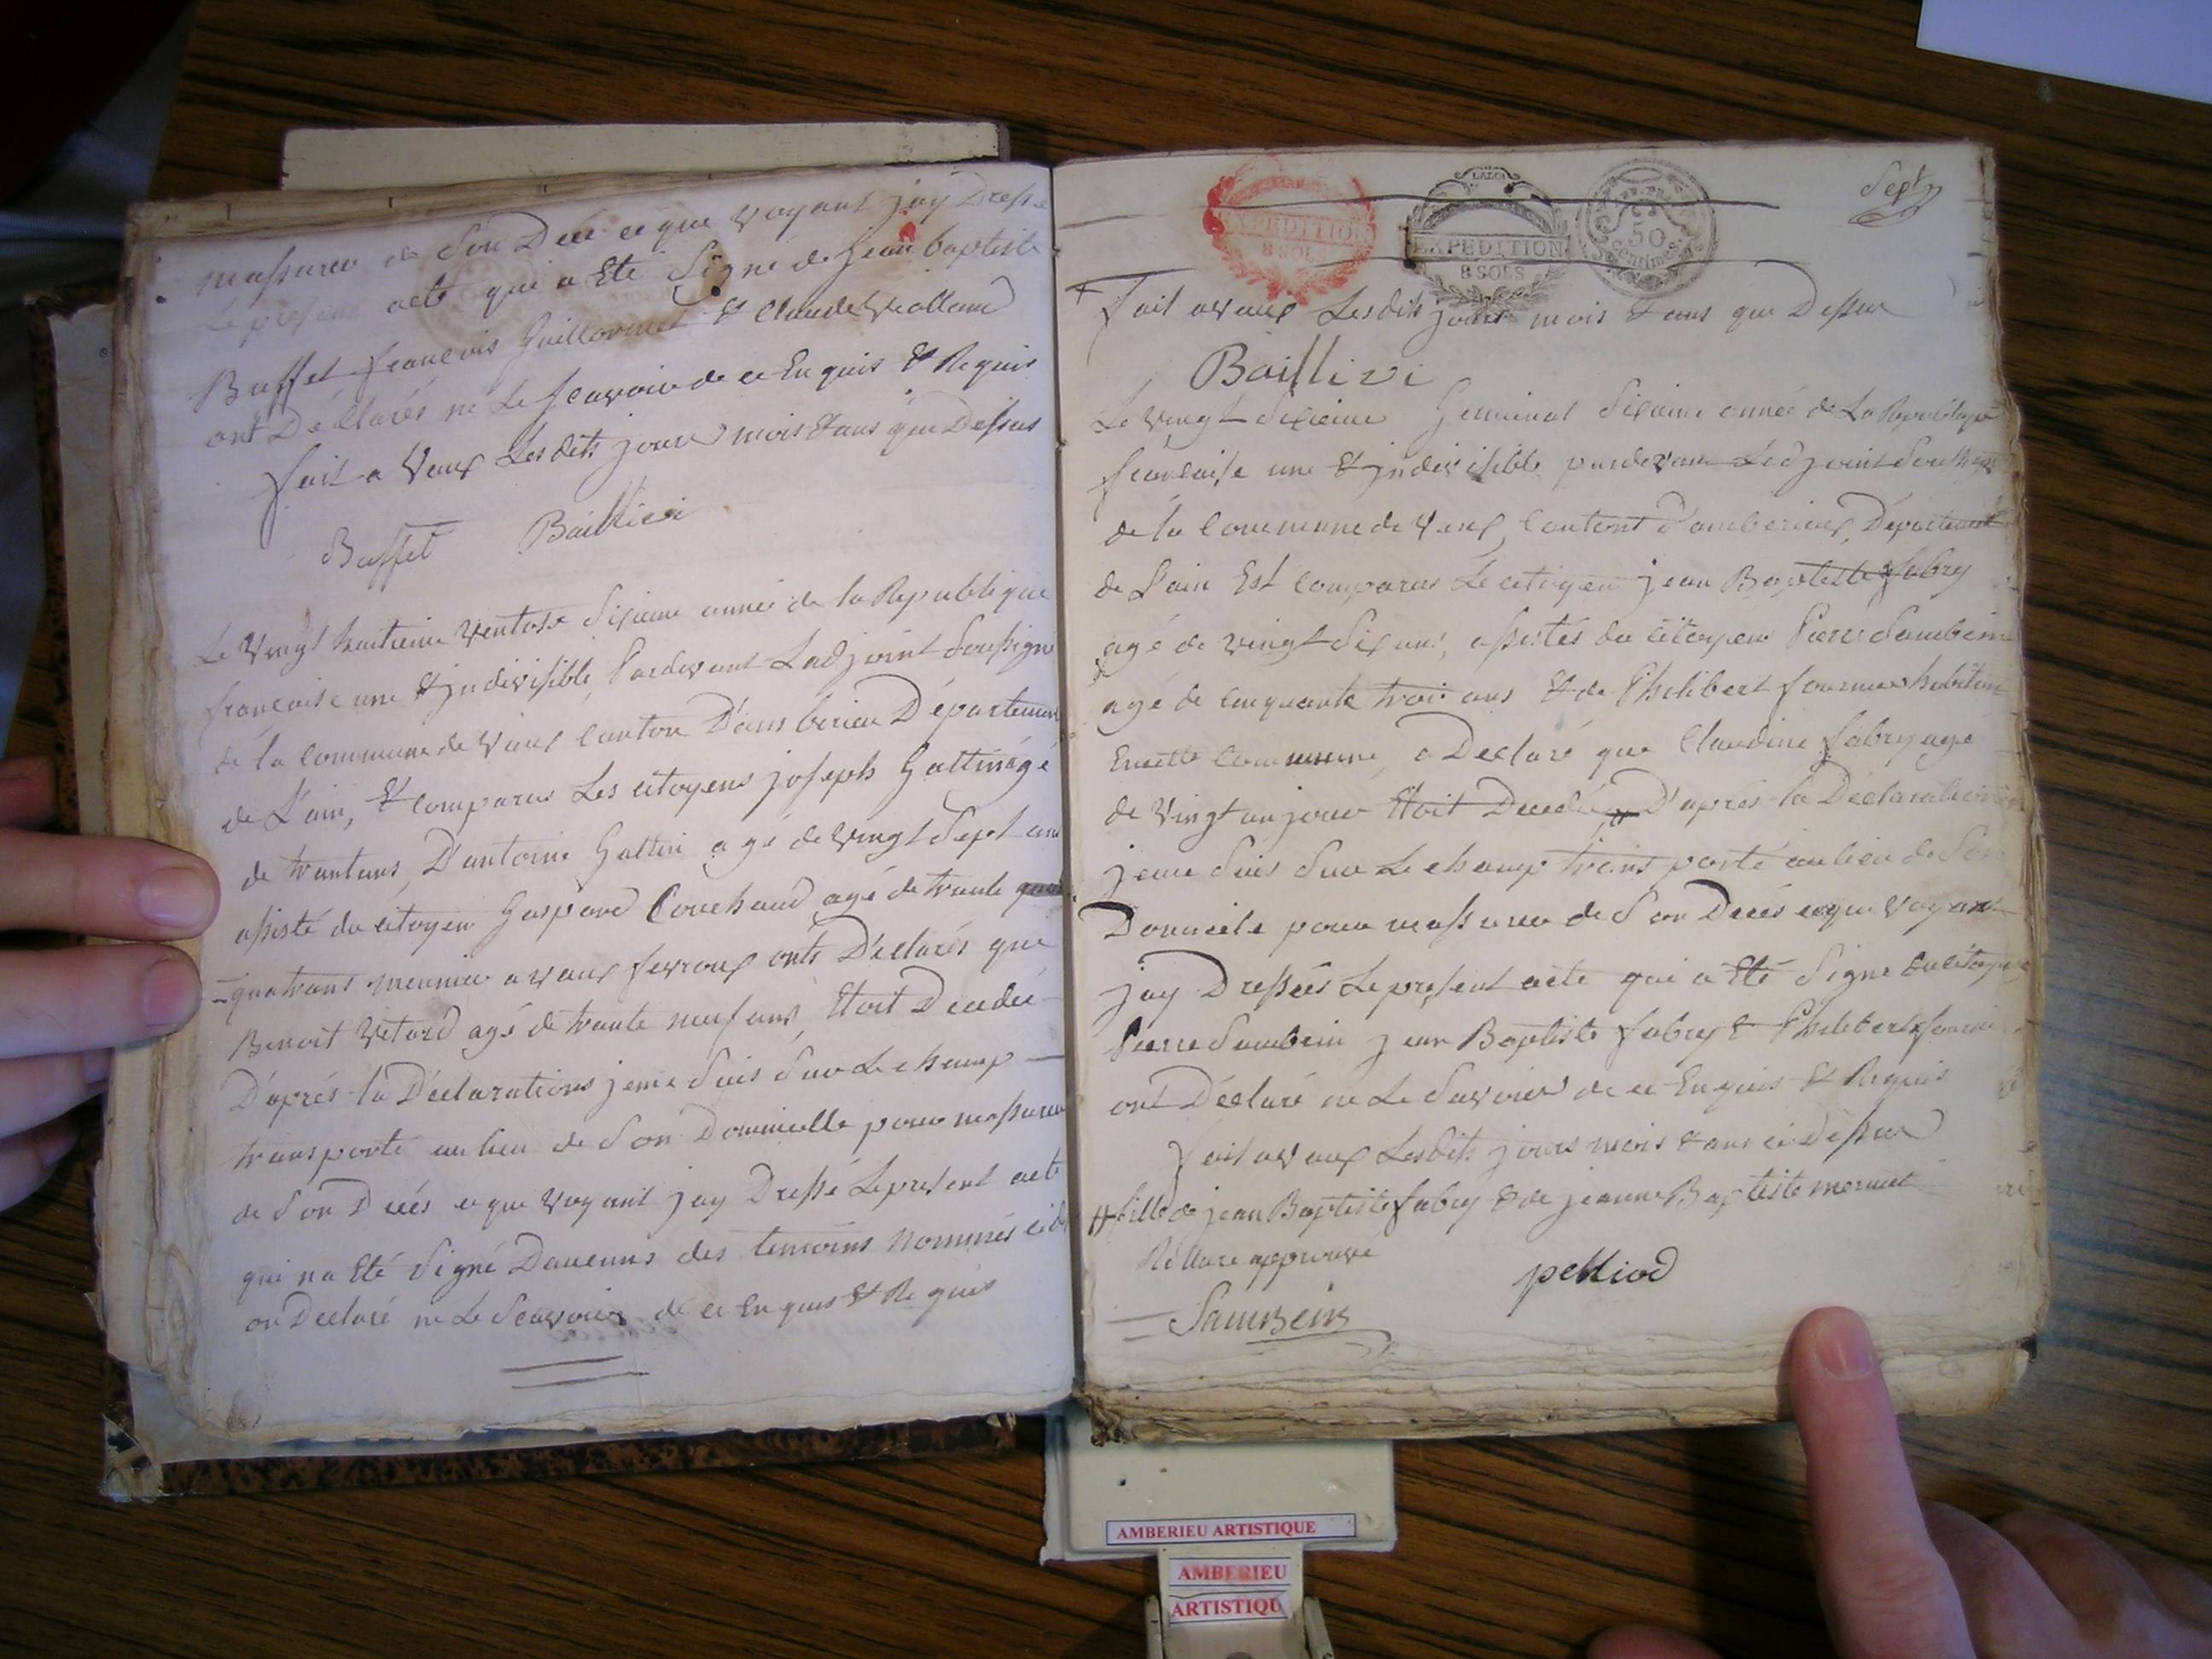 massurer de Son Décé ce que voyant jay Dressé
Le present acte qui a Eté Signé de Jean baptiste
Buffet francois Guillermet & Claude Viallard
ont Déclarés ne Le scavoir de ce Enquis & Requis
fait a Vaux Lesdits jours mois & ans que Dessus
Buffet Baillivi
Le Vingt huitieme Ventose Sixieme année de la Republique
francaise une & jndivisible Pardevant Ladjoint Soussigné
de la Commune de Vaux Canton D'amberieu Département
de L'ain, & comparus Les citoyens joseph Gattin agé
de trantans, D'antoine Gattin agé de Vingt Sept ans
assisté du citoyen Gaspard Couchaud agé de trante
quatrans meunier a vaux fevroux onts Déclarés que
Benoit Vétard agé de trante neuf ans, Etoit Decedé
D'aprés la Déclarations jeme Suis Sur Le champ
transporté au lieu de Son Domicille pour massurer
de Son Décés ce que Voyant jay Dressé Le present acte
qui na Eté Signé Daucuns des temoins Nommés
on Declaré ne Le Scavoir de ce Enquis & Requis
Sept
EXPEDITION
8 SOLS
LA LOI
EXPEDITION
8 SOLS
50
Centimes
fait a vaux Lesdits jours mois & ans que Dessus
Baillivi
Le Vingt Sixieme Germinal Sixieme année de La Republique
francaise une & jndivisible pardevant Ladjoint Soussigné
de la Commune de Vaux, Cantont D'amberieux, Département
de L'ain Est comparus Le citoyen jean Baptiste fabry
agé de vingt Six ans, assistés du citoyen Pierre Sambein
agé de cinquante trois ans & de Philibert fournier habitant
Encette Commune, a Declaré que Claudine fabry agé
de vingt un jour Etoit Decedé # D'aprés la Déclaration
jeme Suis Sur Le champ trans porté au lieu de Son
Domicile pour massurer de Son Décés ce que Voyant
jay Dressés Le present acte qui a Eté Signé du citoyen
Pierre Sambein jean Baptiste fabry & Philibert fournier
ont Déclaré ne Le Savoir de ce Enquis & Requis
fait a vaux Lesdits jours mois & ans ci dessus
# fille de jean Baptiste fabry & de jeanne Baptiste mornet
approuvé
pelliod
SamBein
AMBERIEU ARTISTIQUE
AMBERIEU
ARTISTIQU